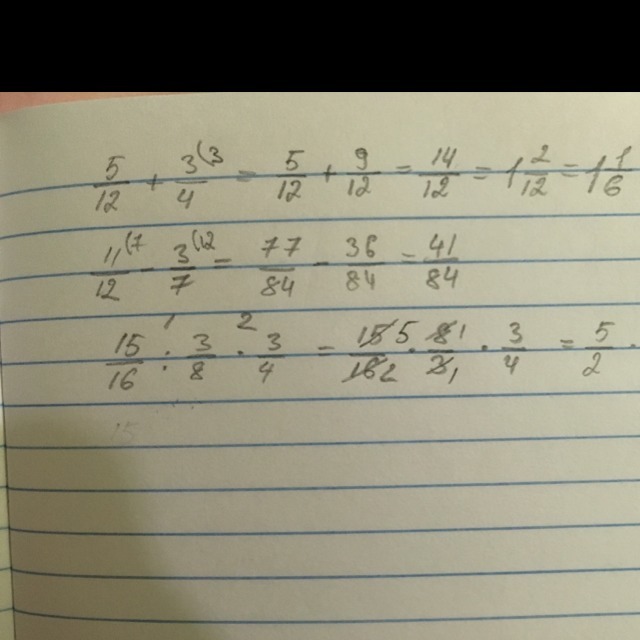 5/12 + 3/4 (3 = 5/12 + 9/12 = 14/12 = 1 2/12 = 1 1/6
11/12 (7 - 3/7 (12 = 77/84 - 36/84 = 41/84
1 2
15/16 : 3/8 · 3/4 = 15 5/16 2 · 8 1/3 1 · 3/4 = 5/2 ·
15